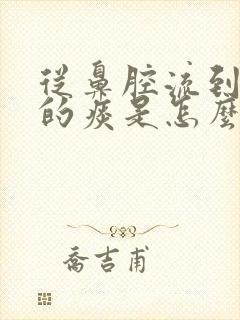 從鼻腔流到
的痰是怎麼
喬吉甫